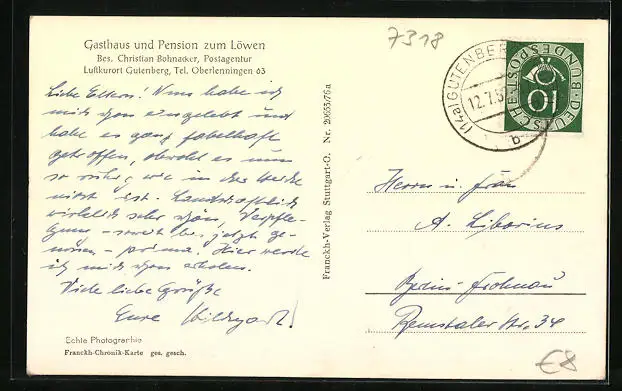 Gasthaus und Pension zum Löwen
Bes. Christian Bohnacker, Postagentur
Luftkurort Gutenberg, Tel. Oberlenningen 63
Liebe Eltern! Nun habe ich
mich schon eingelebt und
habe es ganz fabelhaft
getroffen, obwohl es nun
so ruhig wie in der Heide
nicht ist. Landschaftlich
wirklich sehr schön, Verpfle-
gung - soweit bis jetzt ge-
nossen - prima. Hier werde
ich mich schon erholen.
Viele liebe Grüße
Eure Hildegard!
Echte Photographie
Franckh-Chronik-Karte ges. gesch.
Franckh-Verlag Stuttgart-O. Nr. 20655/76a
7318
(14a) GUTENBERG
12.7.5
b
DEUTSCHE BUNDESPOST
10
Herrn u. Frau
A. Liborius
Berlin-Frohnau
Remstaler Str. 34
€8